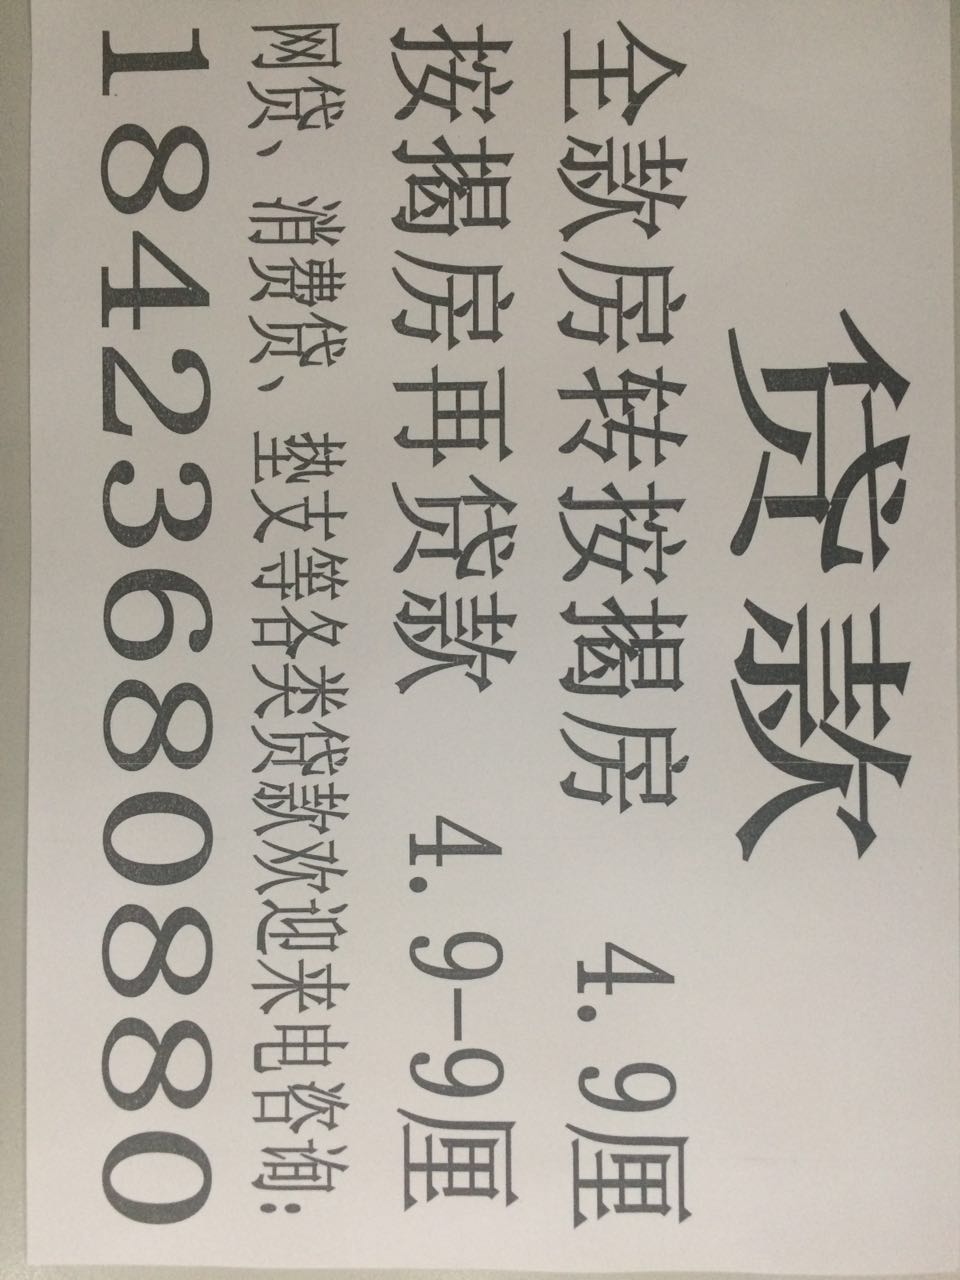 贷款
全款房转按揭房 4.9厘
按揭房再贷款 4.9-9厘
网贷、消费贷、垫支等各类贷款欢迎来电咨询:
18423680880